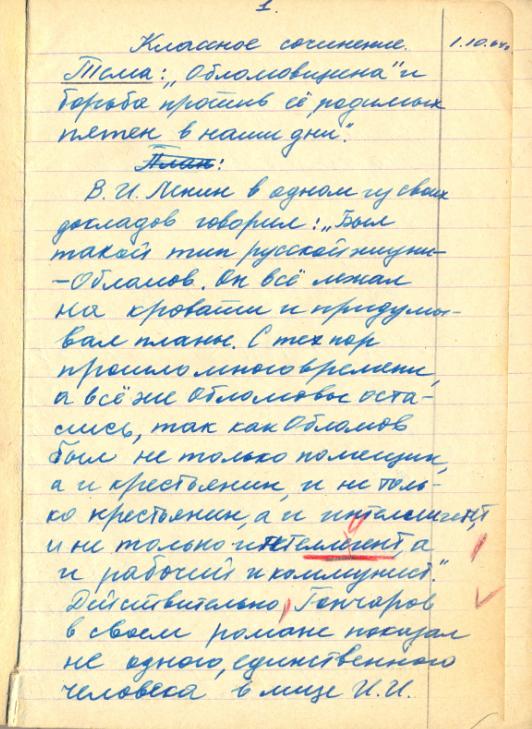 1.
Классное сочинение.
1.10.64г.
Тема: „Обломовщина" и
борьба против её родимых
пятен в наши дни".
План:
В. И. Ленин в одном из своих
докладов говорил: „Был
такой тип русской жизни-
-Обломов. Он всё лежал
на кровати и придумы-
вал планы. С тех пор
прошло много времени,
а всё же Обломовы оста-
лись, так как Обломов
был не только помещик,
а и крестьянин, и не толь-
ко крестьянин, а и интеллигент,
и не только интеллигент, а
и рабочий и коммунист."
Действительно, Гончаров
в своем романе показал
не одного, единственного
человека в лице И. И.